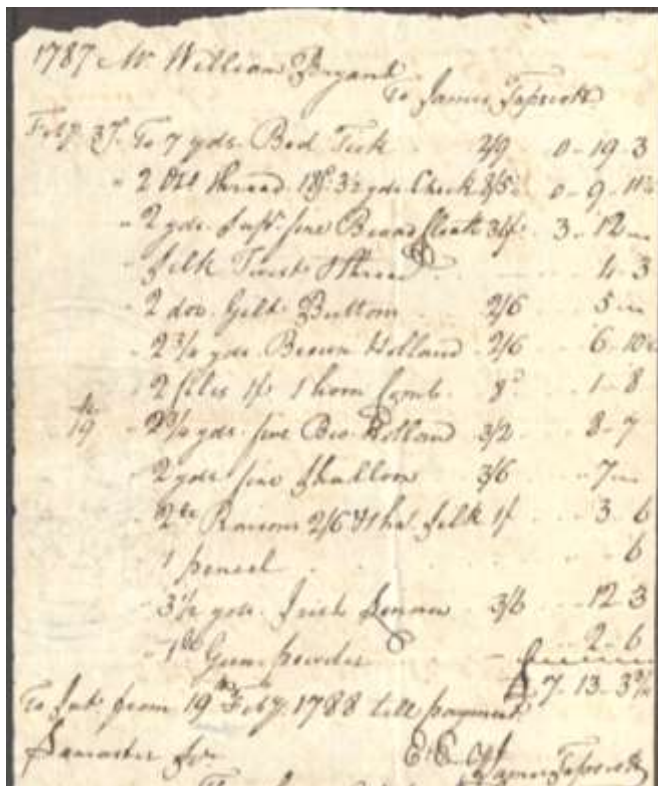 1787 Mr William Bryant
To James Tapscott
Feby 3d. To 7 yds. Bed Tick 2/9 0 - 19 - 3
" 2 thread 18d. 3½ yds Check 0 - 9 - 11½
" 2 yds. Supr. fine Broad Cloth 3 - 12 -
" Silk Twist & thread 4 - 3
" 2 doz. Gilt Buttons 2/6 5 -
" 2 3/4 yds. Brown Holland 2/6 6 - 10½
" 2 files 1/ 1 horn Comb 8d 1 - 8
19 " 2 3/4 yds. fine Bro. Holland 3/2 8 - 7
" 2 yds fine Shalloon 3/6 7 -
" 2 lb Raisons 2/6 silk 1/ 3 - 6
1 pencel 6
" 3½ yds. Irish Linnen 3/6 12 - 3
" 1 lb Gun powder 2 - 6
£ 7 - 13 - 3
To Int. from 19th Feby. 1788 till payment
Lancaster Sc.
E. E. James Tapscott